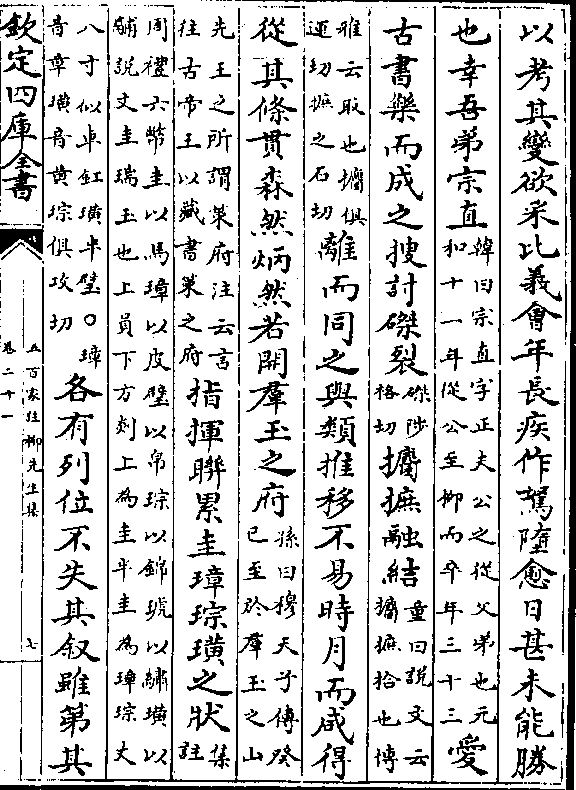 以考其變欲采比義會年長疾作駑墮愈日甚未能勝
也幸吾弟宗直韓曰宗直字正夫公之從父弟也元和十一年從公至柳而卒年三十三愛
古書樂而成之搜討磔裂磔陟格切攟摭融結童曰說文云攟摭拾也博
雅云取也攟俱運切摭之石切離而同之與類推移不易時月而咸得
從其條貫森然炳然若開羣玉之府孫曰穆天子傳癸巳至於羣玉之山
先王之所謂策府注云言往古帝王以藏書策之府指揮聯累圭璋琮璜之狀集註
周禮六幣圭以馬璋以皮璧以帛琮以錦琥以繡璜以黼說文圭瑞玉也上員下方剡上為圭半圭為璋琮丈
八寸似車釭璜半璧○璋音章璜音黄琮俱攻切各有列位不失其叙雖第其
欽定四庫全書
五百家註柳先生集
卷二十一
七